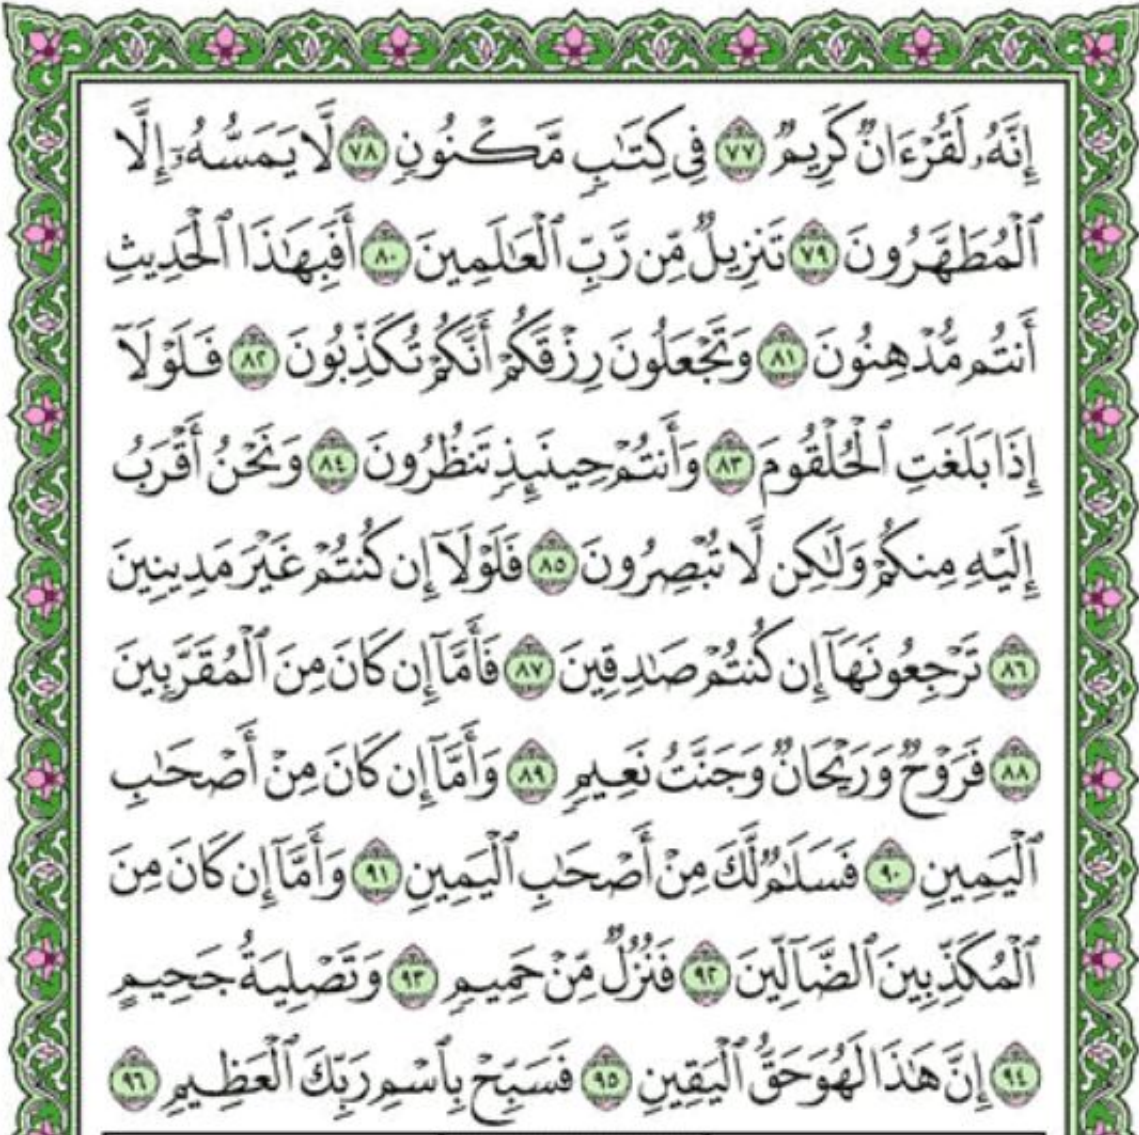 إِنَّهُۥ لَقُرْءَانٌ كَرِيمٌ ٧٧ فِي كِتَٰبٍ مَّكْنُونٍ ٧٨ لَّا يَمَسُّهُۥٓ إِلَّا
ٱلْمُطَهَّرُونَ ٧٩ تَنزِيلٌ مِّن رَّبِّ ٱلْعَٰلَمِينَ ٨٠ أَفَبِهَٰذَا ٱلْحَدِيثِ
أَنتُم مُّدْهِنُونَ ٨١ وَتَجْعَلُونَ رِزْقَكُمْ أَنَّكُمْ تُكَذِّبُونَ ٨٢ فَلَوْلَآ
إِذَا بَلَغَتِ ٱلْحُلْقُومَ ٨٣ وَأَنتُمْ حِينَئِذٍ تَنظُرُونَ ٨٤ وَنَحْنُ أَقْرَبُ
إِلَيْهِ مِنكُمْ وَلَٰكِن لَّا تُبْصِرُونَ ٨٥ فَلَوْلَآ إِن كُنتُمْ غَيْرَ مَدِينِينَ
٨٦ تَرْجِعُونَهَآ إِن كُنتُمْ صَٰدِقِينَ ٨٧ فَأَمَّآ إِن كَانَ مِنَ ٱلْمُقَرَّبِينَ
٨٨ فَرَوْحٌ وَرَيْحَانٌ وَجَنَّتُ نَعِيمٍ ٨٩ وَأَمَّآ إِن كَانَ مِنْ أَصْحَٰبِ
ٱلْيَمِينِ ٩٠ فَسَلَٰمٌ لَّكَ مِنْ أَصْحَٰبِ ٱلْيَمِينِ ٩١ وَأَمَّآ إِن كَانَ مِنَ
ٱلْمُكَذِّبِينَ ٱلضَّآلِّينَ ٩٢ فَنُزُلٌ مِّنْ حَمِيمٍ ٩٣ وَتَصْلِيَةُ جَحِيمٍ
٩٤ إِنَّ هَٰذَا لَهُوَ حَقُّ ٱلْيَقِينِ ٩٥ فَسَبِّحْ بِٱسْمِ رَبِّكَ ٱلْعَظِيمِ ٩٦